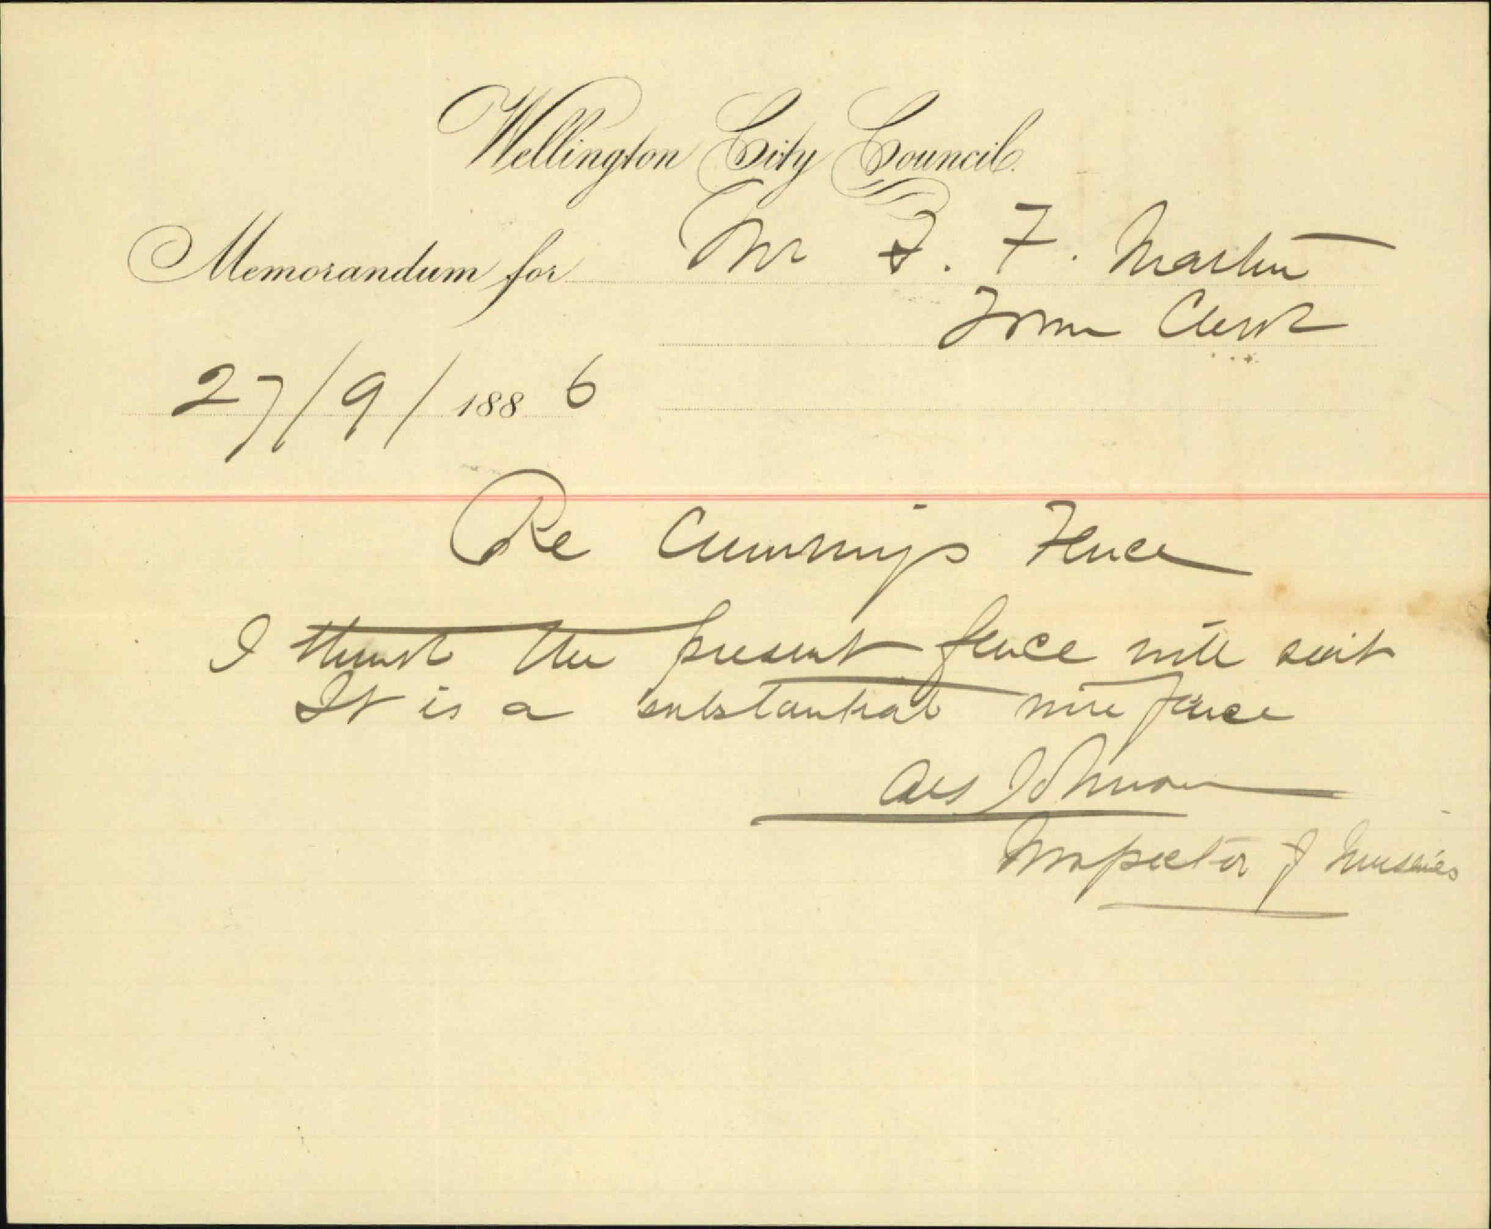 Wellington City Council.
Memorandum for Mr F. F. Martin
Town Clerk
27/9/1886
Re Cummings Fence
I think the present fence will suit
It is a substantial wire fence
Johnson
Inspector of Nuisances